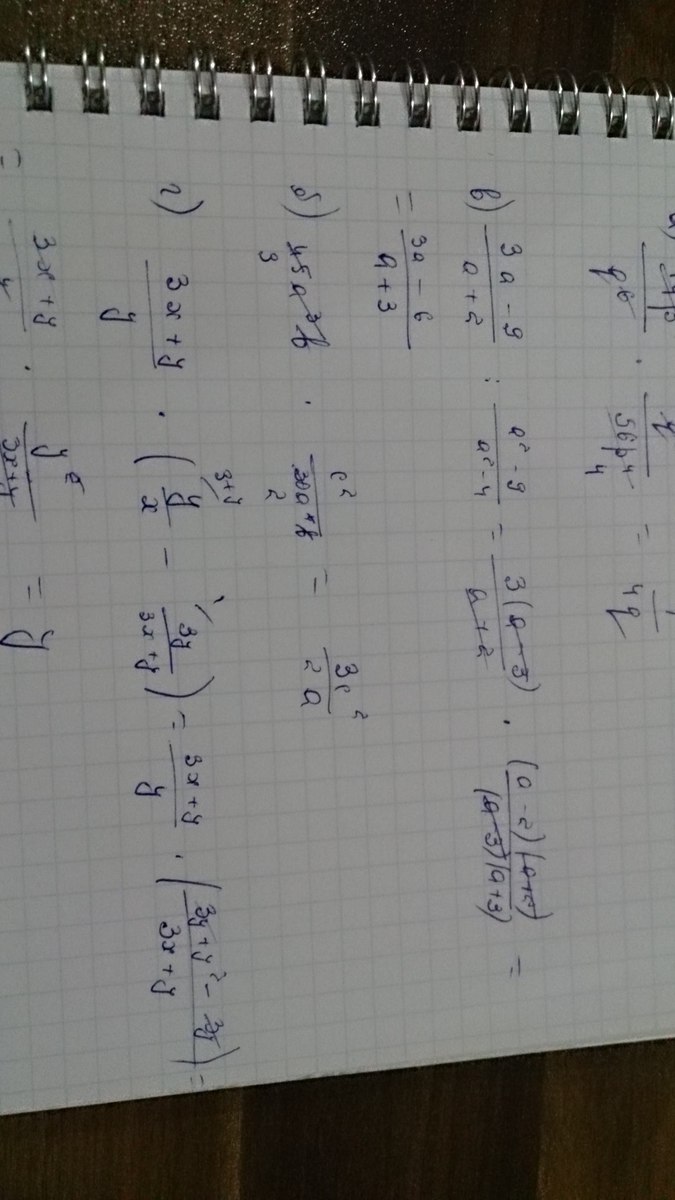 а) · 56p⁴ 4 = 1/4q
в) (3a - 9)/(a + 2) : (a² - 9)/(a² - 4) = 3(a - 3)/(a + 2) · (a - 2)(a + 2)/(a - 3)(a + 3) =
= (3a - 6)/(a + 3)
б) 45 3 a³b · c²/30a⁴b 2 = 3c²/2a
г) (3x + y)/y · (y/x - 3y/(3x + y)) = (3x + y)/y · ((3y + y² - 3y)/(3x + y)) =
= (3x + y)/y · y²/(3x + y) = y